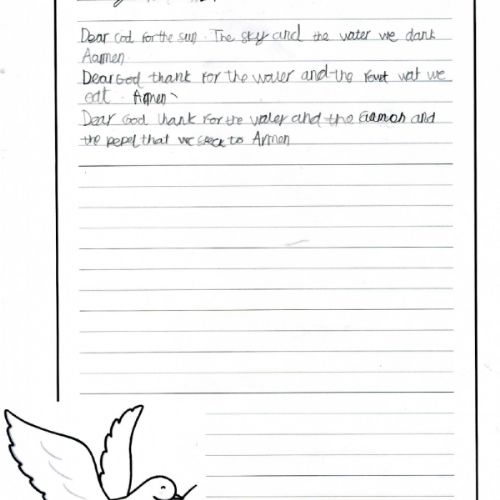 Dear God for the sun. The sky and the water we dank
Aamen
Dear God thank for the water and the wat we
eat. Amen
Dear God thank for the water and the and
the pepel that we speck to Armen